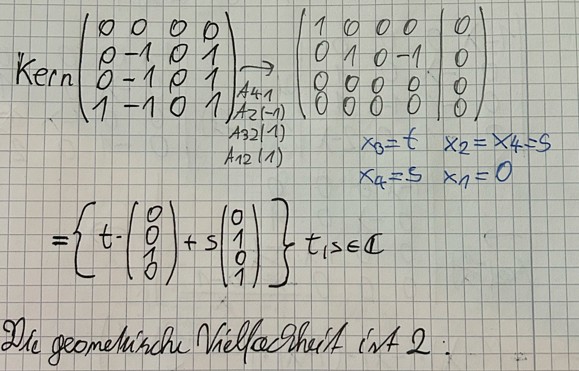 0 0 0 0 1 0 0 0 | 0
0 -1 0 1 0 1 0 -1 | 0
Kern 0 -1 0 1 → 0 0 0 0 | 0
1 -1 0 1 0 0 0 0 | 0
A41
A2(-1)
A32(1)
A12(1)
x₃=t x₂=x₄=s
x₄=s x₁=0
={ t·(0 0 1 0) + s(0 1 0 1) } t,s∈ℂ
Die geometrische Vielfachheit ist 2.